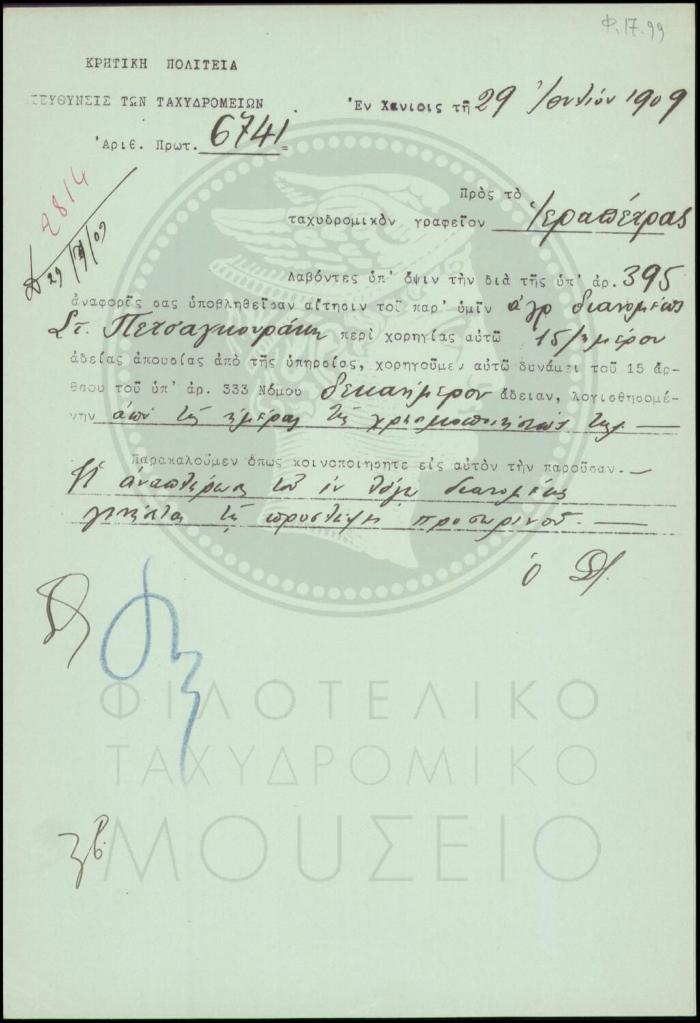 Φ.17.99
ΚΡΗΤΙΚΗ ΠΟΛΙΤΕΙΑ
ΙΕΥΘΥΝΣΙΣ ΤΩΝ ΤΑΧΥΔΡΟΜΕΙΩΝ
Ἐν Χανίοις τῇ 29 Ἰουλίου 1909
Ἀριθ. Πρωτ. 6741
2814
Πρὸς τὸ
ταχυδρομικὸν γραφεῖον Ἱεραπέτρας
29/7/09
Λαβόντες ὑπ' ὄψιν τὴν διὰ τῆς ὑπ' ἀρ. 395
ἀναφορᾶς σας ὑποβληθεῖσαν αἴτησιν τοῦ παρ' ὑμῖν ἀγρ διανομέως
Στ. Πετσαγκουράκη περὶ χορηγίας αὐτῷ 15/ημέρου
ἀδείας ἀπουσίας ἀπὸ τῆς ὑπηρσίας, χορηγοῦμεν αὐτῷ δυνάμει τοῦ 15 ἄρ-
θρου τοῦ ὑπ' ἀρ. 333 Νόμου δεκαήμερον ἄδειαν, λογισθησομέ-
νην ἀπὸ τῆς ἡμέρας τῆς χρησιμοποιήσεώς της.
Παρακαλοῦμεν ὅπως κοινοποιήσητε εἰς αὐτὸν τὴν παροῦσαν.
Ἡ ἀναπλήρωσις τοῦ ἐν λόγῳ διανομέως
γενήσεται τῇ προσλήψει προσωρινοῦ.
ὁ Δ.
ΦΙΛΟΤΕΛΙΚΟ
ΤΑΧΥΔΡΟΜΙΚΟ
ΜΟΥΣΕΙΟ